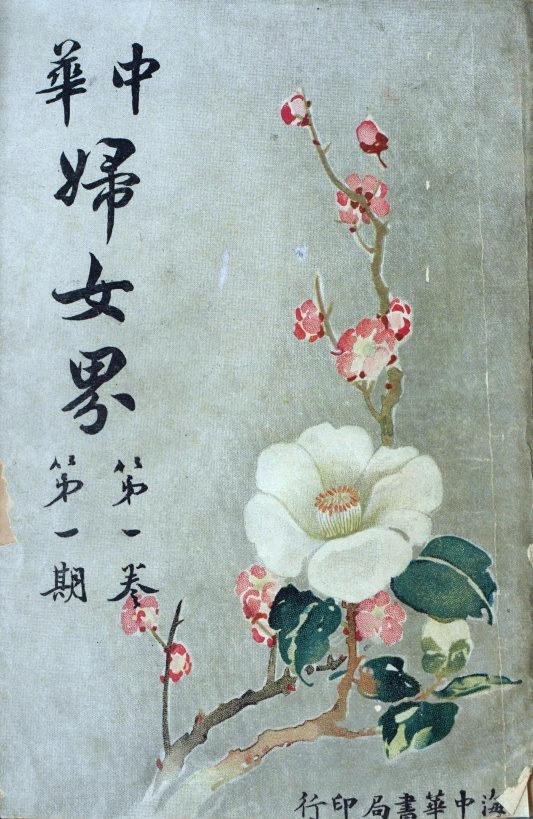 中華
婦女界
第一卷
第一期
海中華書局印行